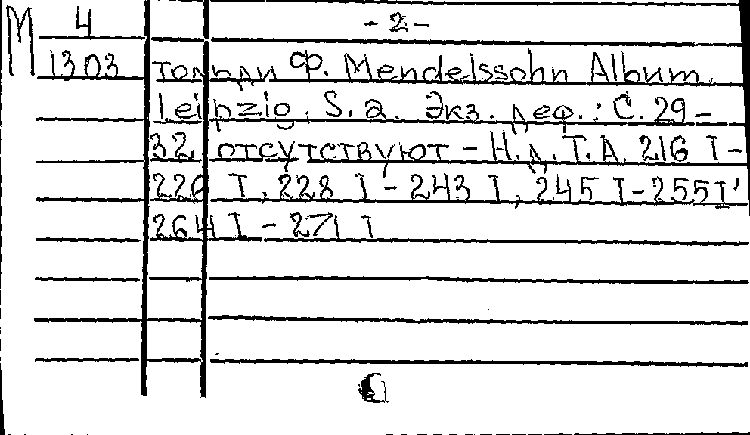 М 4 - 2 -
1303 тольди Ф. Mendelssohn Album.
Leipzig. S. a. Экз. деф.: С. 29-
32 отсутствуют - Н. д. Т. А. 216 I-
226 I, 228 I - 243 I, 245 I - 255 I'
264 I - 271 I